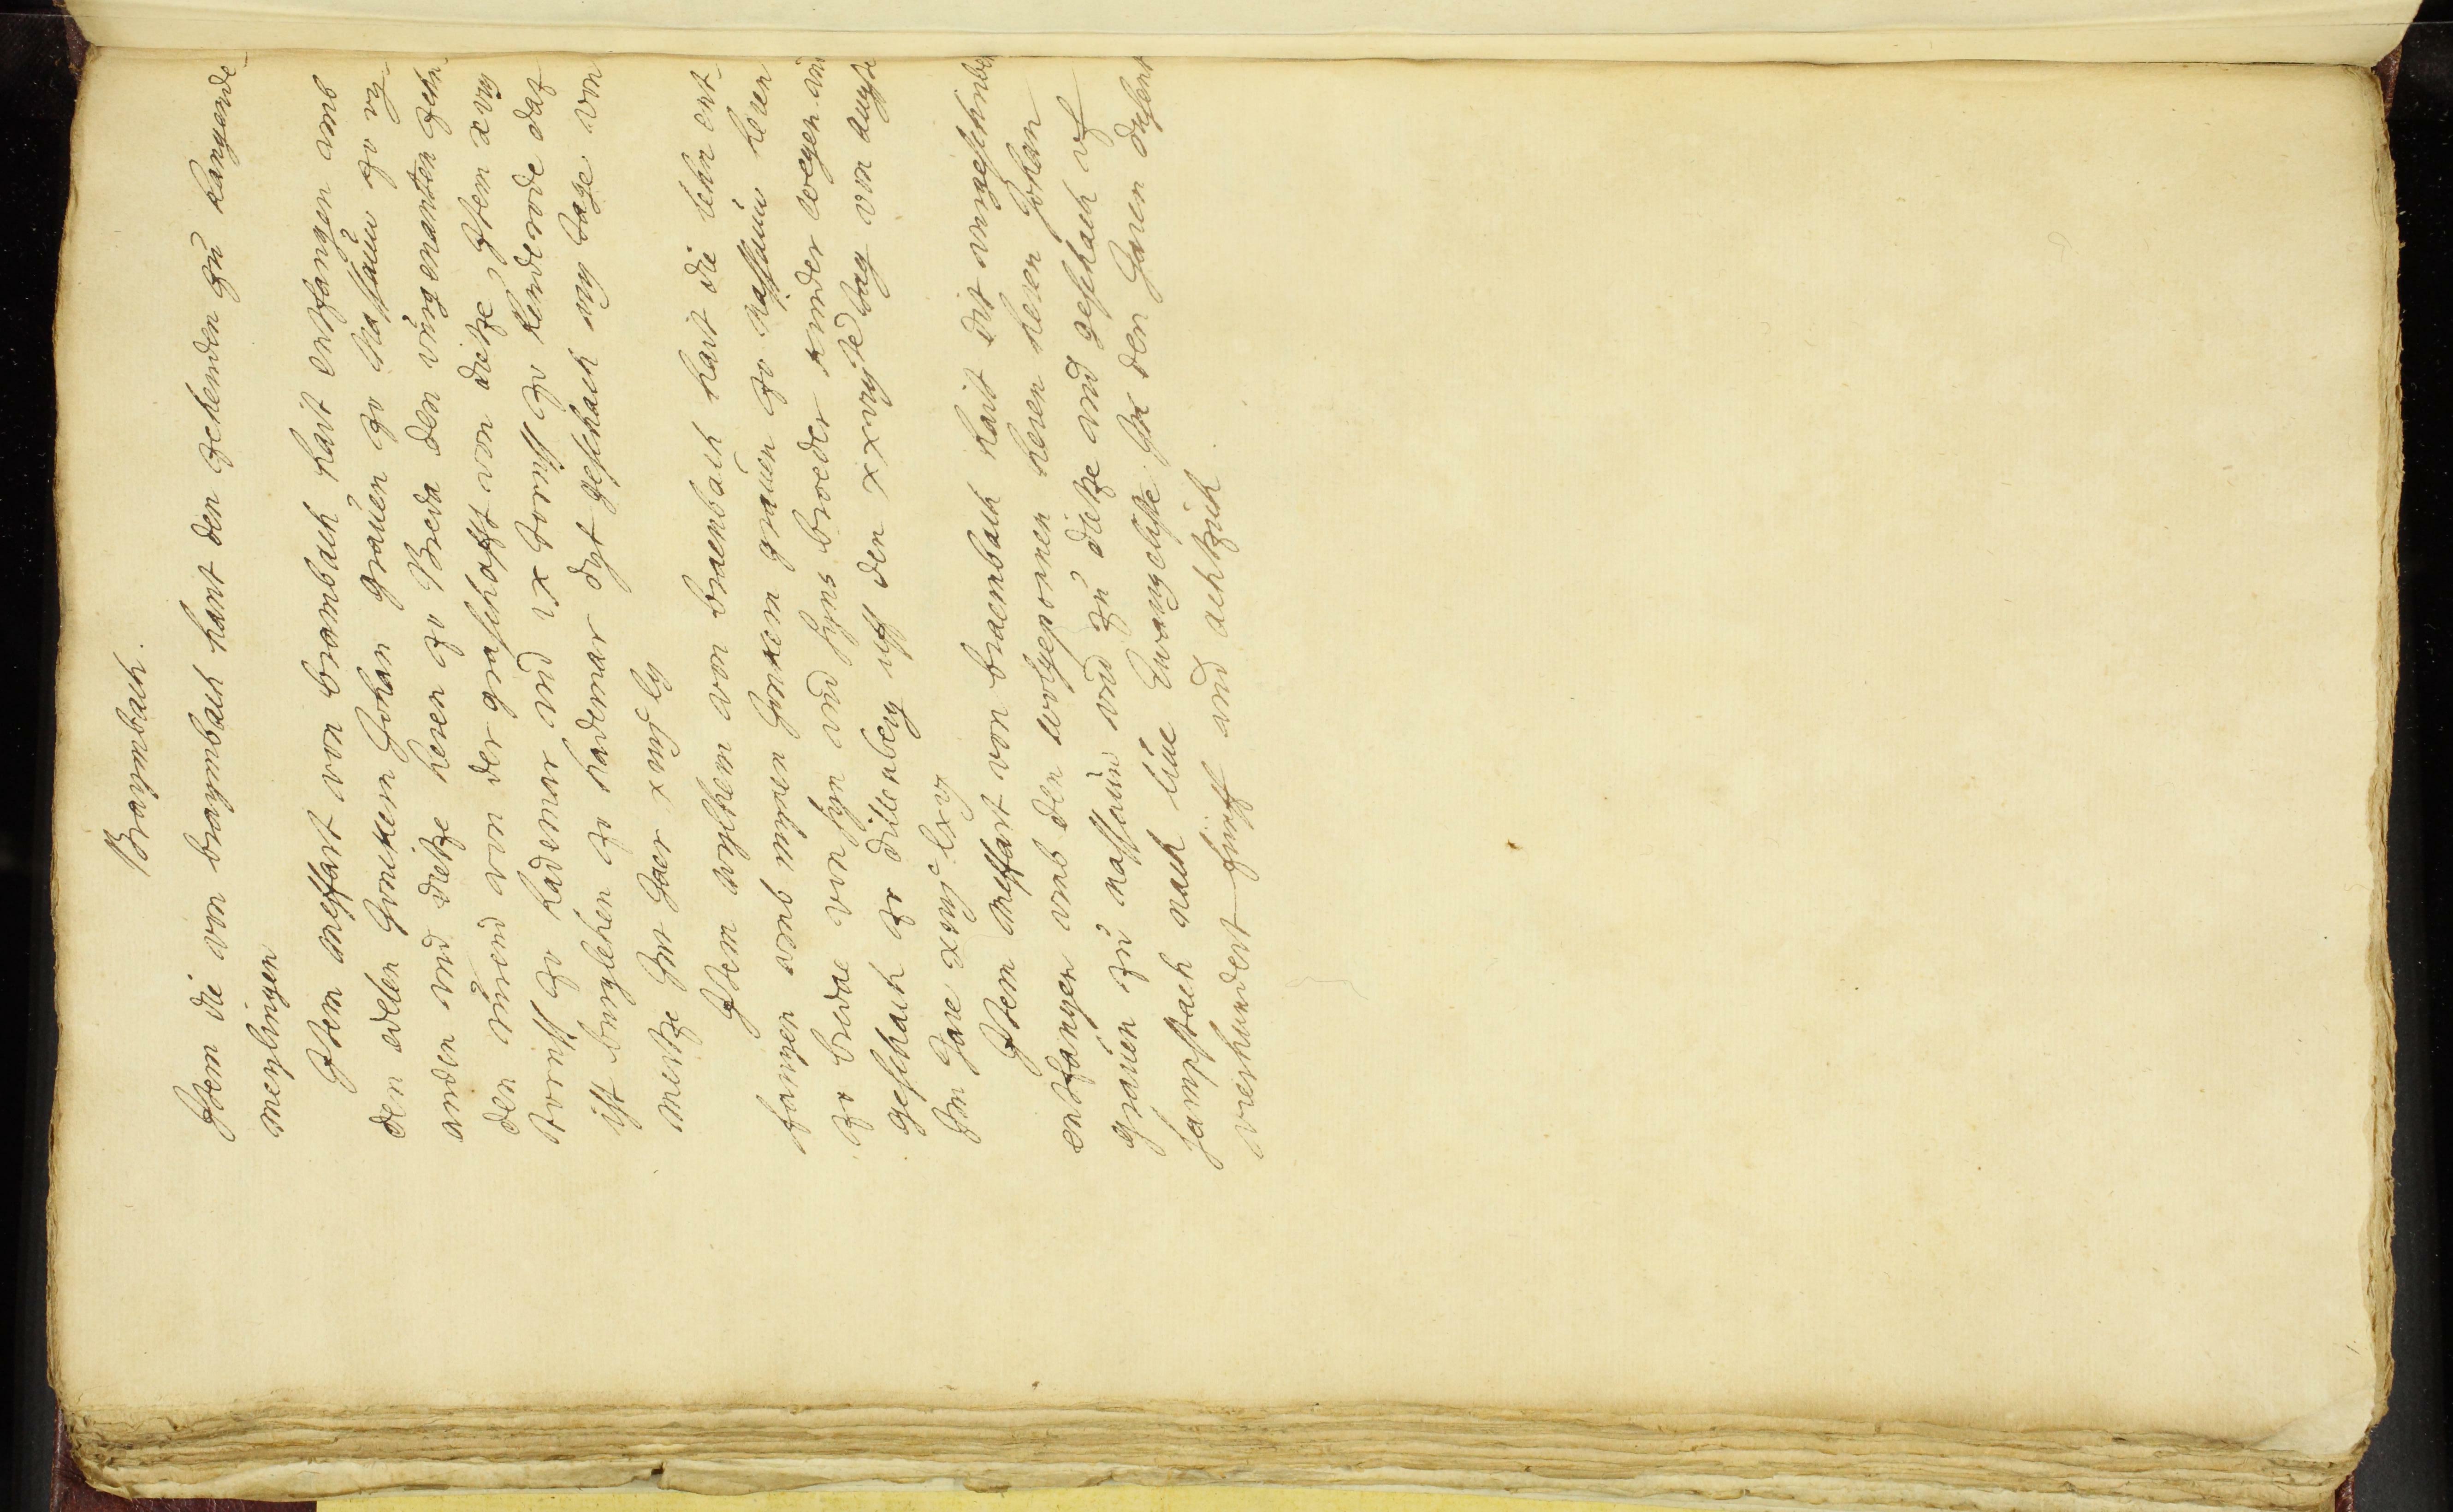 Braÿmbach.
Item die von braÿmbach hant den zehenden zu hangende
meÿlingen
Item meffart von brambach hait entfangen vmb
den edelen Jonckern Johan grauen zo Nassauw zo vÿ
anden vnd dietze heren zo Breda den vurgenanten zehn
den rurend von der graschafft von dietze Item xvÿ
tornß zo hademar vnd ix tornß zo henderode daz
ist burglehen zo hademar dyt geschach vÿ dage von
mertze Int Jaer xiiijᶜ lÿ
Item wylhem von braembach hait die lehn ent
fangen vmb mynen Jonkern grauen zo nassauw heren
zo bredae von syn vnd syns broeder wegen vnd
geschach zo dillenberg uff den xxviijsten dag von auyste
Im Jare xiiijᶜ lxvj
Item meffart von braembach hait dit vurgeschribe
entfangen vmb den wolgepornen heren heren Johan
grauen zu nassauw vnd zu dietze vnd geschach vf
sampstach nach luce Ewangeliste In den Jaren dusent
vierhundert funff vnd achtzich